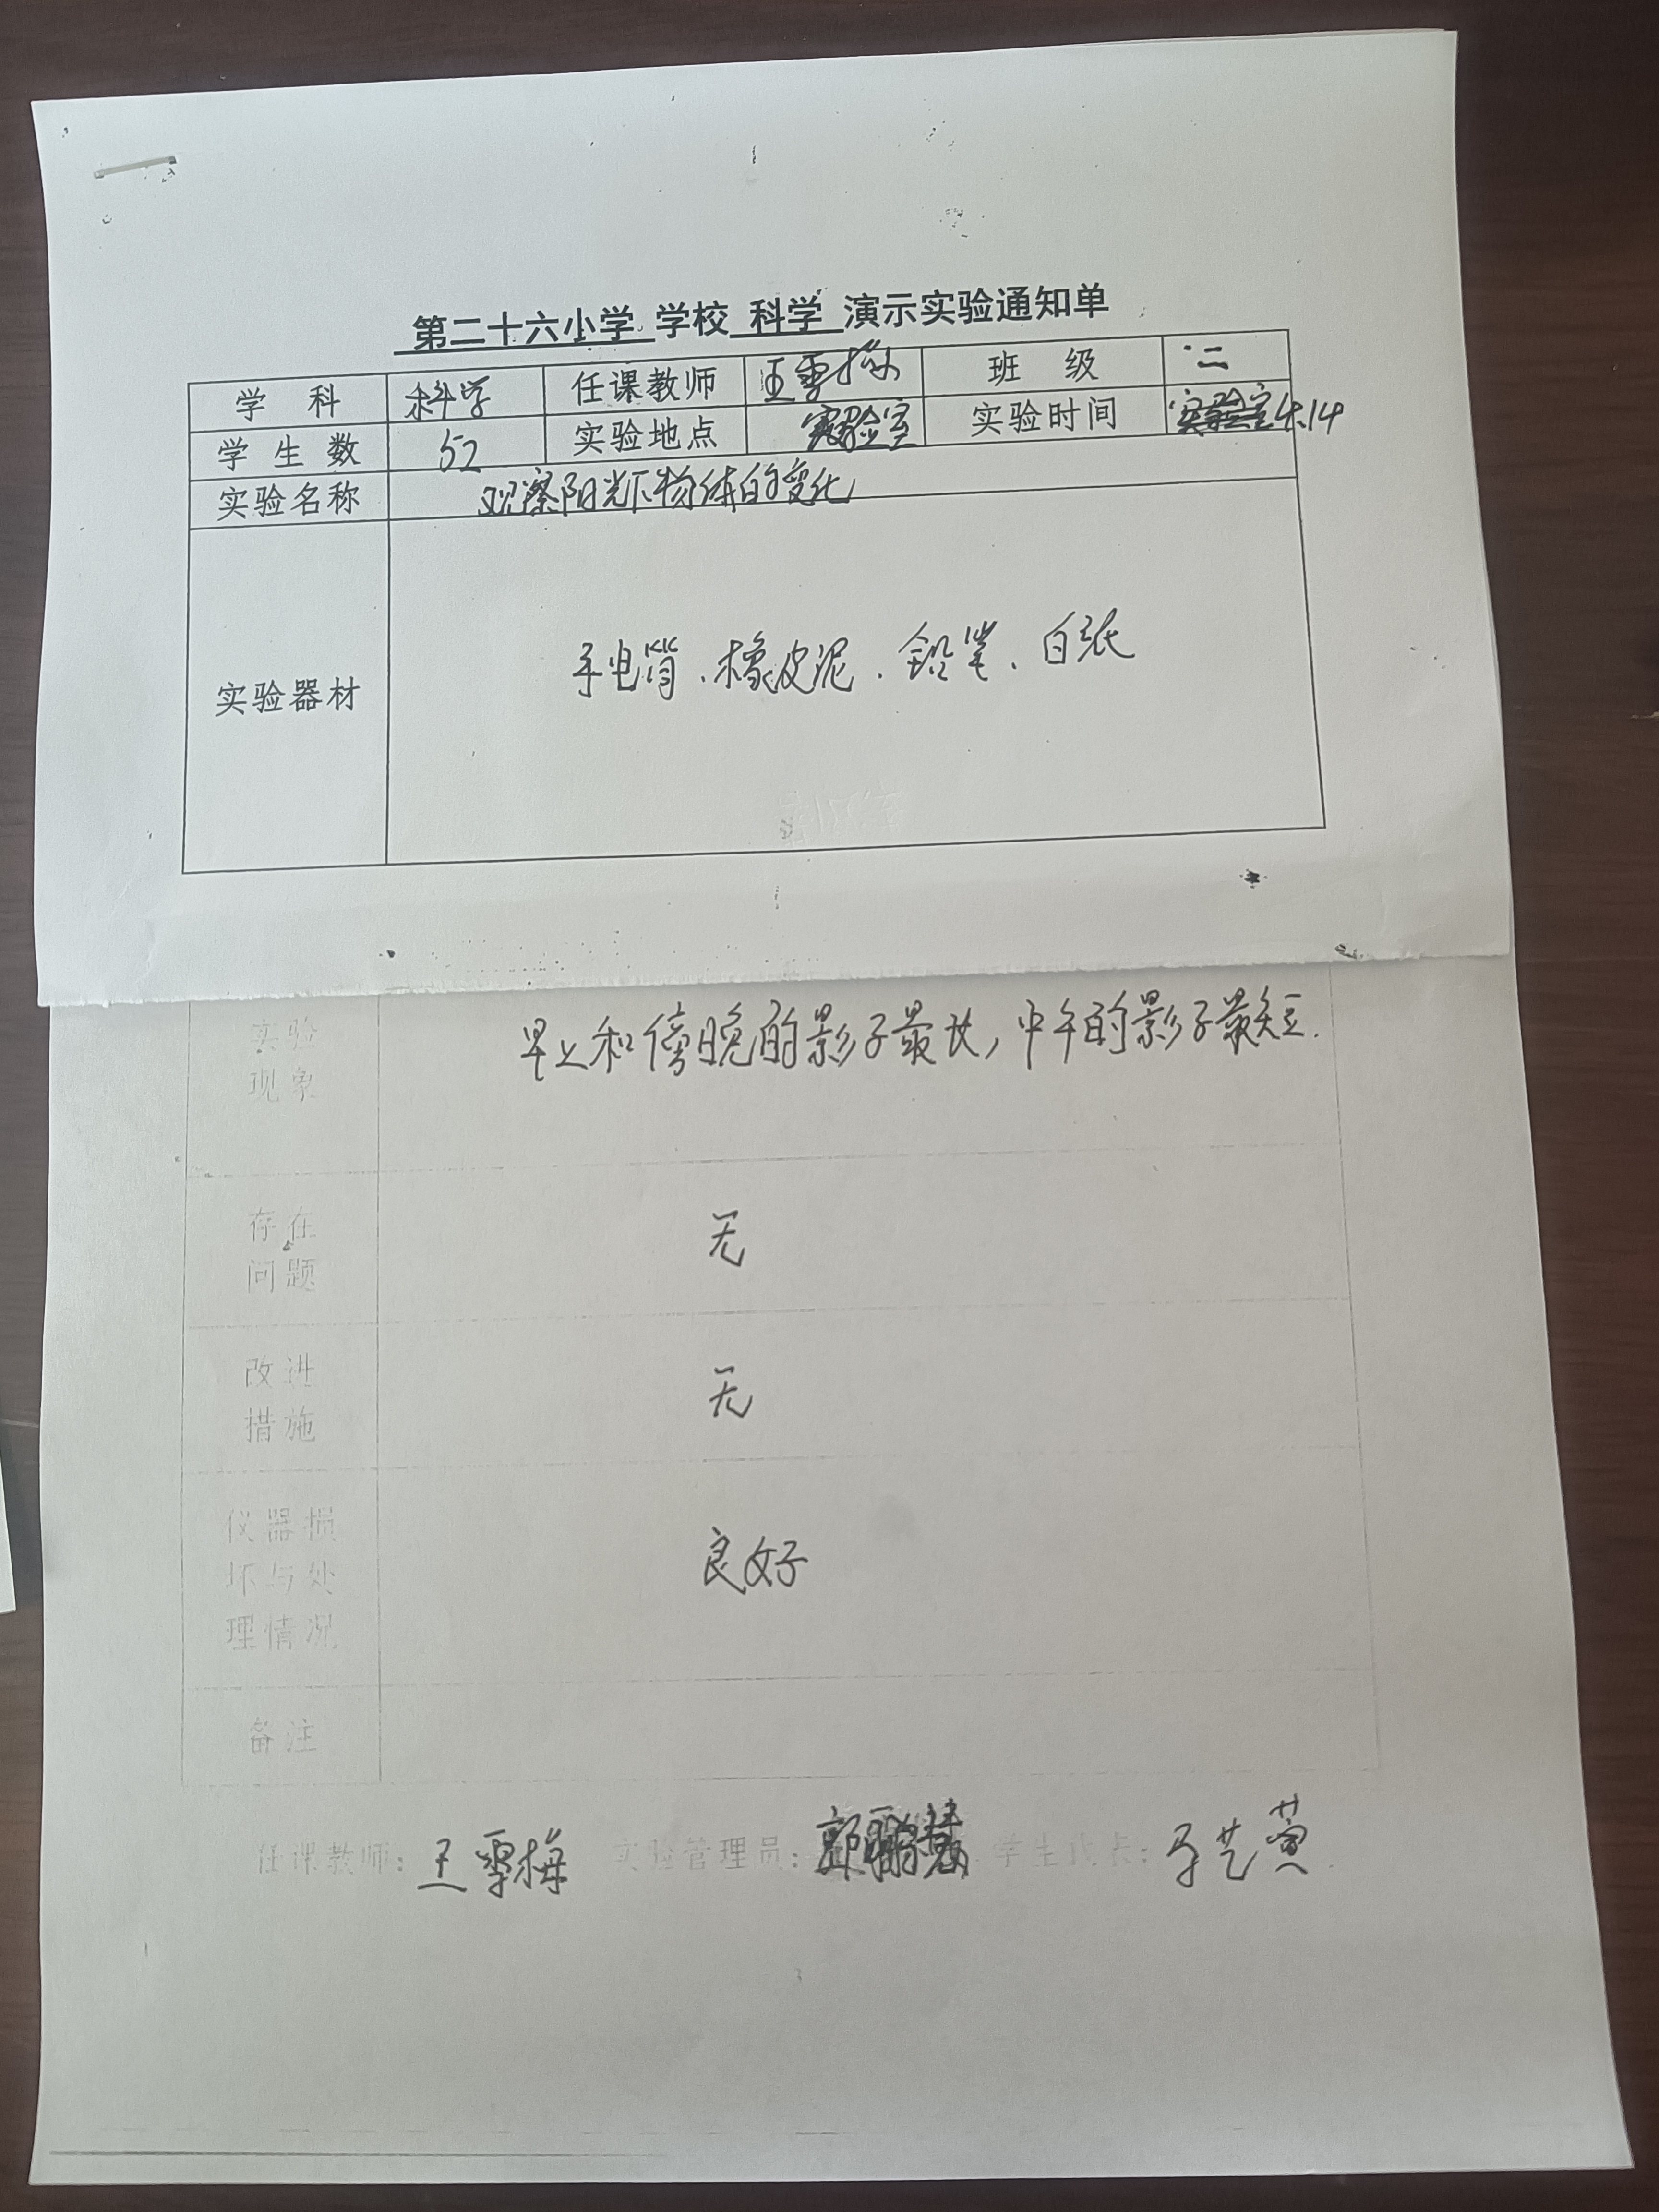 第二十六小学 学校 科学 演示实验通知单
学科 科学 任课教师 王雪梅 班级 二
学生数 52 实验地点 实验室 实验时间 4.14
实验名称 观察阳光下物体的变化
实验器材 手电筒、橡皮泥、铅笔、白纸
实验现象 早上和傍晚的影子最长,中午的影子最短.
存在问题 无
改进措施 无
仪器损坏与处理情况 良好
备注
任课教师:王雪梅 实验管理员: 学生代表: